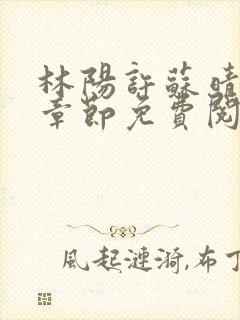 林陽許蘇晴
章節免費閱
風起漣漪,布丁